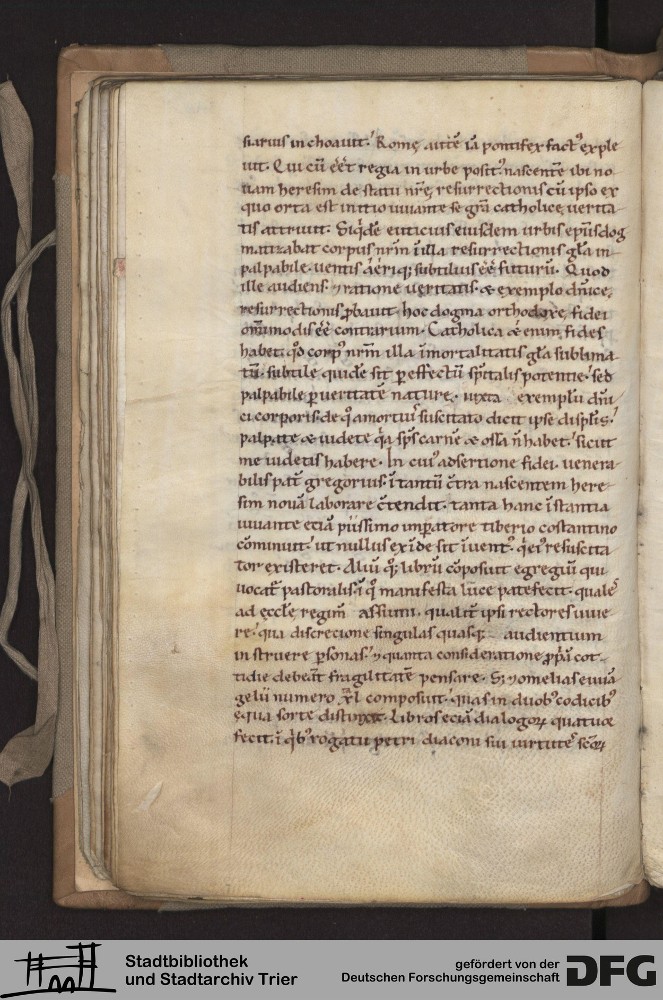 siarius inchoauit. Romę autē iā pontifex fact᷒ exple
uit. Qui cū eēt regia in urbe posit᷒ nascentē ibi no
uam heresim de statu nrē resurrectionis cū ipso ex
quo orta est initio uiuante se gr̄a catholicę uerita
tis attriuit. Siqdē euticius eiusdem urbis ep̄us dog
matizabat corpus nr̄m ī illa resurrectionis gl̄a in
palpabile. uentis aeriq; subtilius eē futurū. Quod
ille audiens. ⁊ ratione ueritatis. & exemplo dn̄icę
resurrectionis ꝓbauit. hoc dogma orthodoxę fidei
om̄imodis eē contrarium. Catholica & enim fides
habet. qd̄ corp᷒ nr̄m illa īmortalitatis gl̄a sublima
tū. subtile quidē sit ꝑ effectū sp̄italis potentię. sed
palpabile ꝑ ueritatē naturę. iuxta exemplū dn̄i
ci corporis. de qͦ a mortui᷒ suscitato dicit ipse discipl̄is.
palpate & uidete qa sp̄s carnē & ossa n̄ habet. sicut
me uidetis habere. In cui᷒ adsertione fidei. uenera
bilis pat̄ gregorius. ī tantū c̄tra nascentem here
sim nouā laborare c̄tendit. tanta hanc īstantia
iuuante etiā piissimo imꝑatore tiberio costantino
cōminuit. ut nullus exīde sit īuent᷒. qi ei᷒ resuscita
tor existeret. Aliū q; librū cōposuit egregiū qui
uocat̄ pastoralis. ī qͦ manifesta luce patefecit. qualē
ad eccl̄ę regim̄ assumi. qualit̄ ipsi rectores uiue
re. qua discrecione singulas quasq; audientium
instruere ꝑsonas. ⁊ quanta consideratione ꝓpā cot
tidie debeāt fragilitatē pensare. S; ⁊ omelias euuā
gelii numero xl composuit. quas in duob᷒ codicib᷒
equa sorte distinxit. Libros eciā dialogoꝝ quatuor
fecit. ī qb᷒ rogatu petri diaconi sui uirtutē sc̄oꝝ
Stadtbibliothek
und Stadtarchiv Trier
gefördert von der
Deutschen Forschungsgemeinschaft
DFG